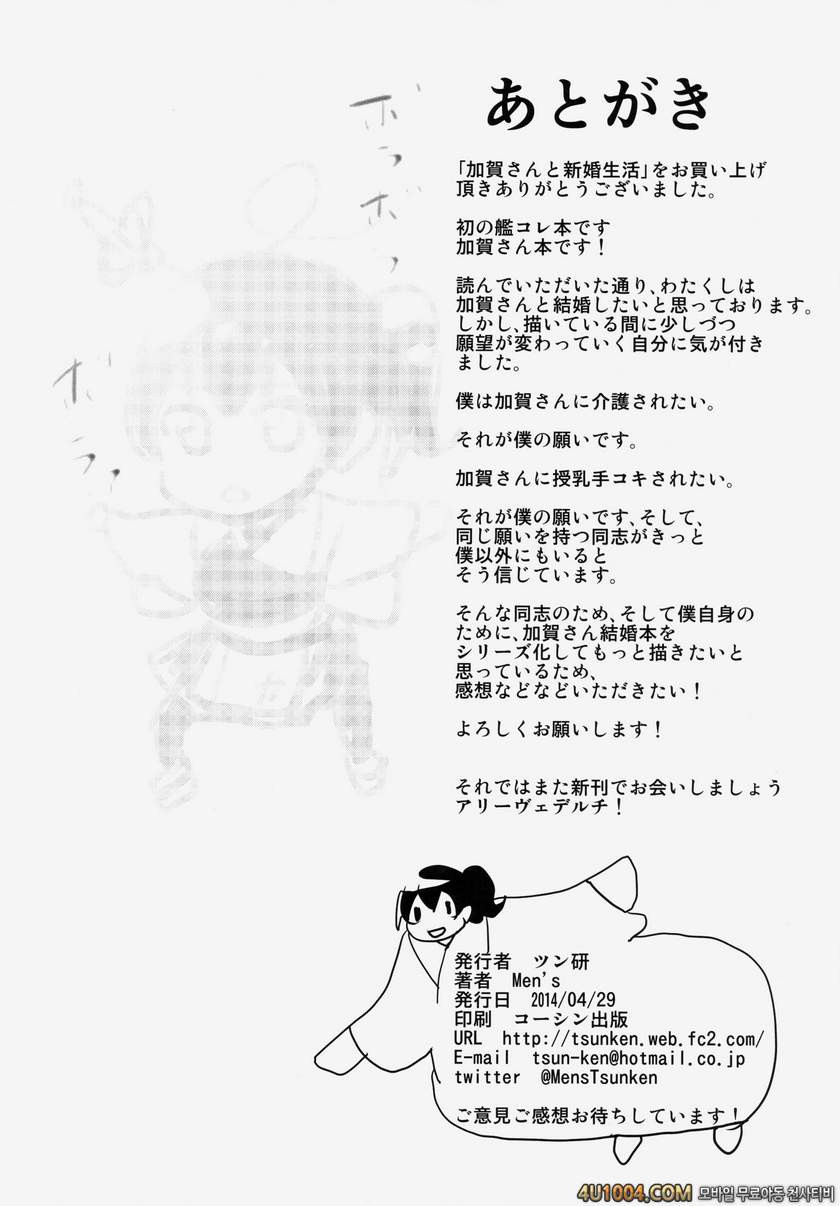 あとがき
「加賀さんと新婚生活」をお買い上げ
頂きありがとうございました。
初の艦コレ本です
加賀さん本です！
読んでいただいた通り、わたくしは
加賀さんと結婚したいと思っております。
しかし、描いている間に少しづつ
願望が変わっていく自分に気が付き
ました。
僕は加賀さんに介護されたい。
それが僕の願いです。
加賀さんに授乳手コキされたい。
それが僕の願いです、そして、
同じ願いを持つ同志がきっと
僕以外にもいると
そう信じています。
そんな同志のため、そして僕自身の
ために、加賀さん結婚本を
シリーズ化してもっと描きたいと
思っているため、
感想などなどいただきたい！
よろしくお願いします！
それではまた新刊でお会いしましょう
アリーヴェデルチ！
ホラ
ホラ
ホラァ
カ
発行者　ツン研
著者　Men's
発行日　2014/04/29
印刷　コーシン出版
URL　http://tsunken.web.fc2.com/
E-mail　tsun-ken@hotmail.co.jp
twitter　@MensTsunken
ご意見ご感想お待ちしています！
4U1004.COM 모바일 무료야동 천사티비